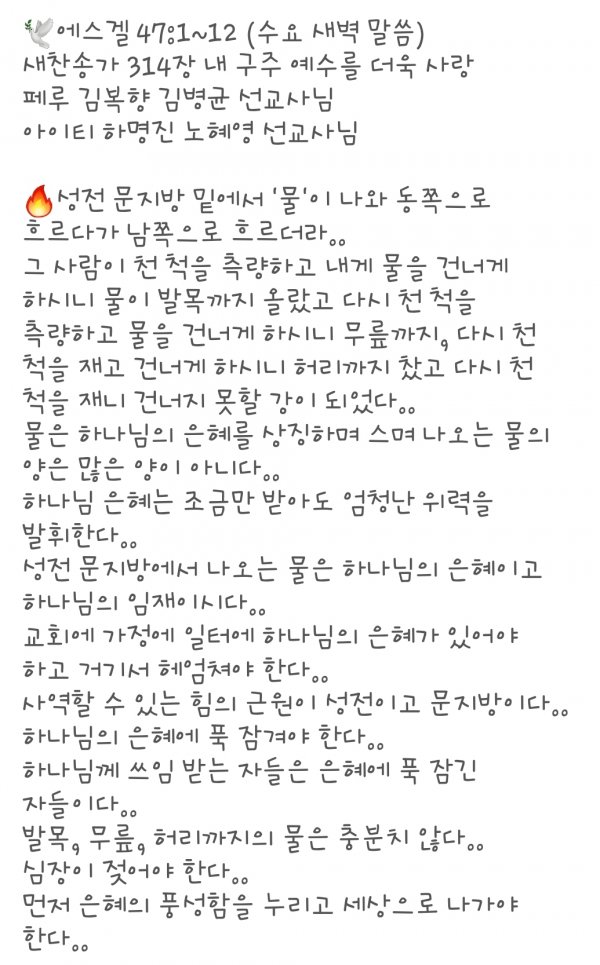 🕊️에스겔 47:1~12 (수요 새벽 말씀)
새찬송가 314장 내 구주 예수를 더욱 사랑
페루 김복향 김병균 선교사님
아이티 하명진 노혜영 선교사님
🔥성전 문지방 밑에서 '물'이 나와 동쪽으로
흐르다가 남쪽으로 흐르더라..
그 사람이 천 척을 측량하고 내게 물을 건너게
하시니 물이 발목까지 올랐고 다시 천 척을
측량하고 물을 건너게 하시니 무릎까지, 다시 천
척을 재고 건너게 하시니 허리까지 찼고 다시 천
척을 재니 건너지 못할 강이 되었다..
물은 하나님의 은혜를 상징하며 스며 나오는 물의
양은 많은 양이 아니다..
하나님 은혜는 조금만 받아도 엄청난 위력을
발휘한다..
성전 문지방에서 나오는 물은 하나님의 은혜이고
하나님의 임재이시다..
교회에 가정에 일터에 하나님의 은혜가 있어야
하고 거기서 헤엄쳐야 한다..
사역할 수 있는 힘의 근원이 성전이고 문지방이다..
하나님의 은혜에 푹 잠겨야 한다..
하나님께 쓰임 받는 자들은 은혜에 푹 잠긴
자들이다..
발목, 무릎, 허리까지의 물은 충분치 않다..
심장이 젖어야 한다..
먼저 은혜의 풍성함을 누리고 세상으로 나가야
한다..